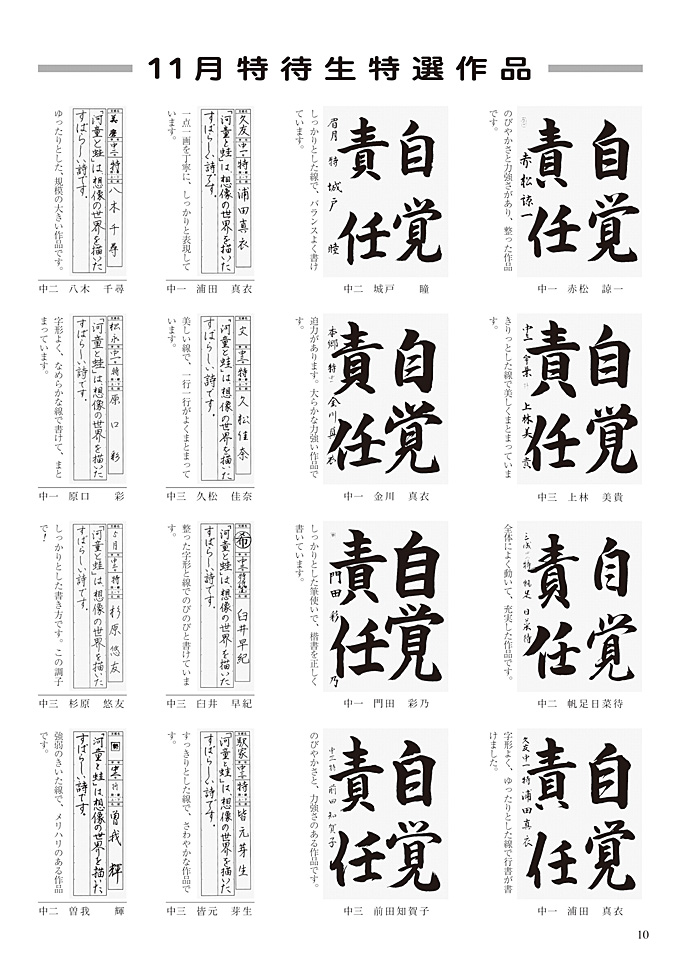 11月特待生特選作品
自覚
責任
赤松諒一
のびやかさと力強さがあり、整った作品
です。
中一 赤松 諒一
自覚
責任
眉月 特 城戸 瞳
しっかりとした線で、バランスよく書け
ています。
中二 城戸 瞳
久友 中一 特 浦田真衣
「河童と蛙」は、想像の世界を描いた
すばらしい詩です。
一点一画を丁寧に、しっかりと表現して
います。
中一 浦田 真衣
美慶 中二 特 八木千尋
「河童と蛙」は、想像の世界を描いた
すばらしい詩です。
ゆったりとした、規模の大きい作品です。
中二 八木 千尋
自覚
責任
上林美貴
きりっとした線で美しくまとまっていま
す。
中三 上林 美貴
自覚
責任
本郷 特 金川真衣
迫力があります。大らかな力強い作品で
す。
中一 金川 真衣
文 中三 特 久松佳奈
「河童と蛙」は、想像の世界を描いた
すばらしい詩です。
美しい線で、一行一行がよくまとまって
います。
中三 久松 佳奈
松永 中一 特 原口彩
「河童と蛙」は、想像の世界を描いた
すばらしい詩です。
字形よく、なめらかな線で書けて、まと
まっています。
中一 原口 彩
自覚
責任
特 帆足日菜待
全体によく動いて、充実した作品です。
中二 帆足日菜待
自覚
責任
門田彩乃
しっかりとした筆使いで、楷書を正しく
書いています。
中一 門田 彩乃
希 中三 特待生 臼井早紀
「河童と蛙」は、想像の世界を描いた
すばらしい詩です。
整った字形と線でのびのびと書けていま
す。
中三 臼井 早紀
5月 中三 特 杉原悠友
「河童と蛙」は、想像の世界を描いた
すばらしい詩です。
しっかりとした書き方です。この調子
で！
中三 杉原 悠友
自覚
責任
久友 中一 特 浦田真衣
字形よく、ゆったりとした線で行書が書
けました。
中一 浦田 真衣
自覚
責任
中三 特 前田知賀子
のびやかさと、力強さのある作品です。
中三 前田知賀子
駅家 中三 特 皆元芽生
「河童と蛙」は、想像の世界を描いた
すばらしい詩です。
すっきりとした線で、さわやかな作品で
す。
中三 皆元 芽生
中二 特 曽我輝
「河童と蛙」は、想像の世界を描いた
すばらしい詩です。
強弱のきいた線で、メリハリのある作品
です。
中二 曽我 輝
10